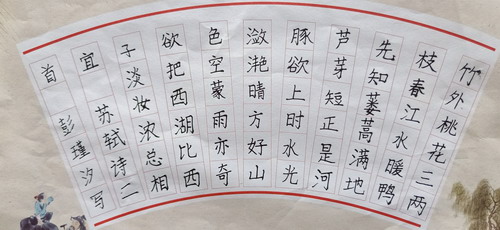 竹外桃花三两
枝春江水暖鸭
先知蒌蒿满地
芦芽短正是河
豚欲上时水光
潋滟晴方好山
色空蒙雨亦奇
欲把西湖比西
子淡妆浓总相
宜 苏轼诗二
首 彭瑾汐写